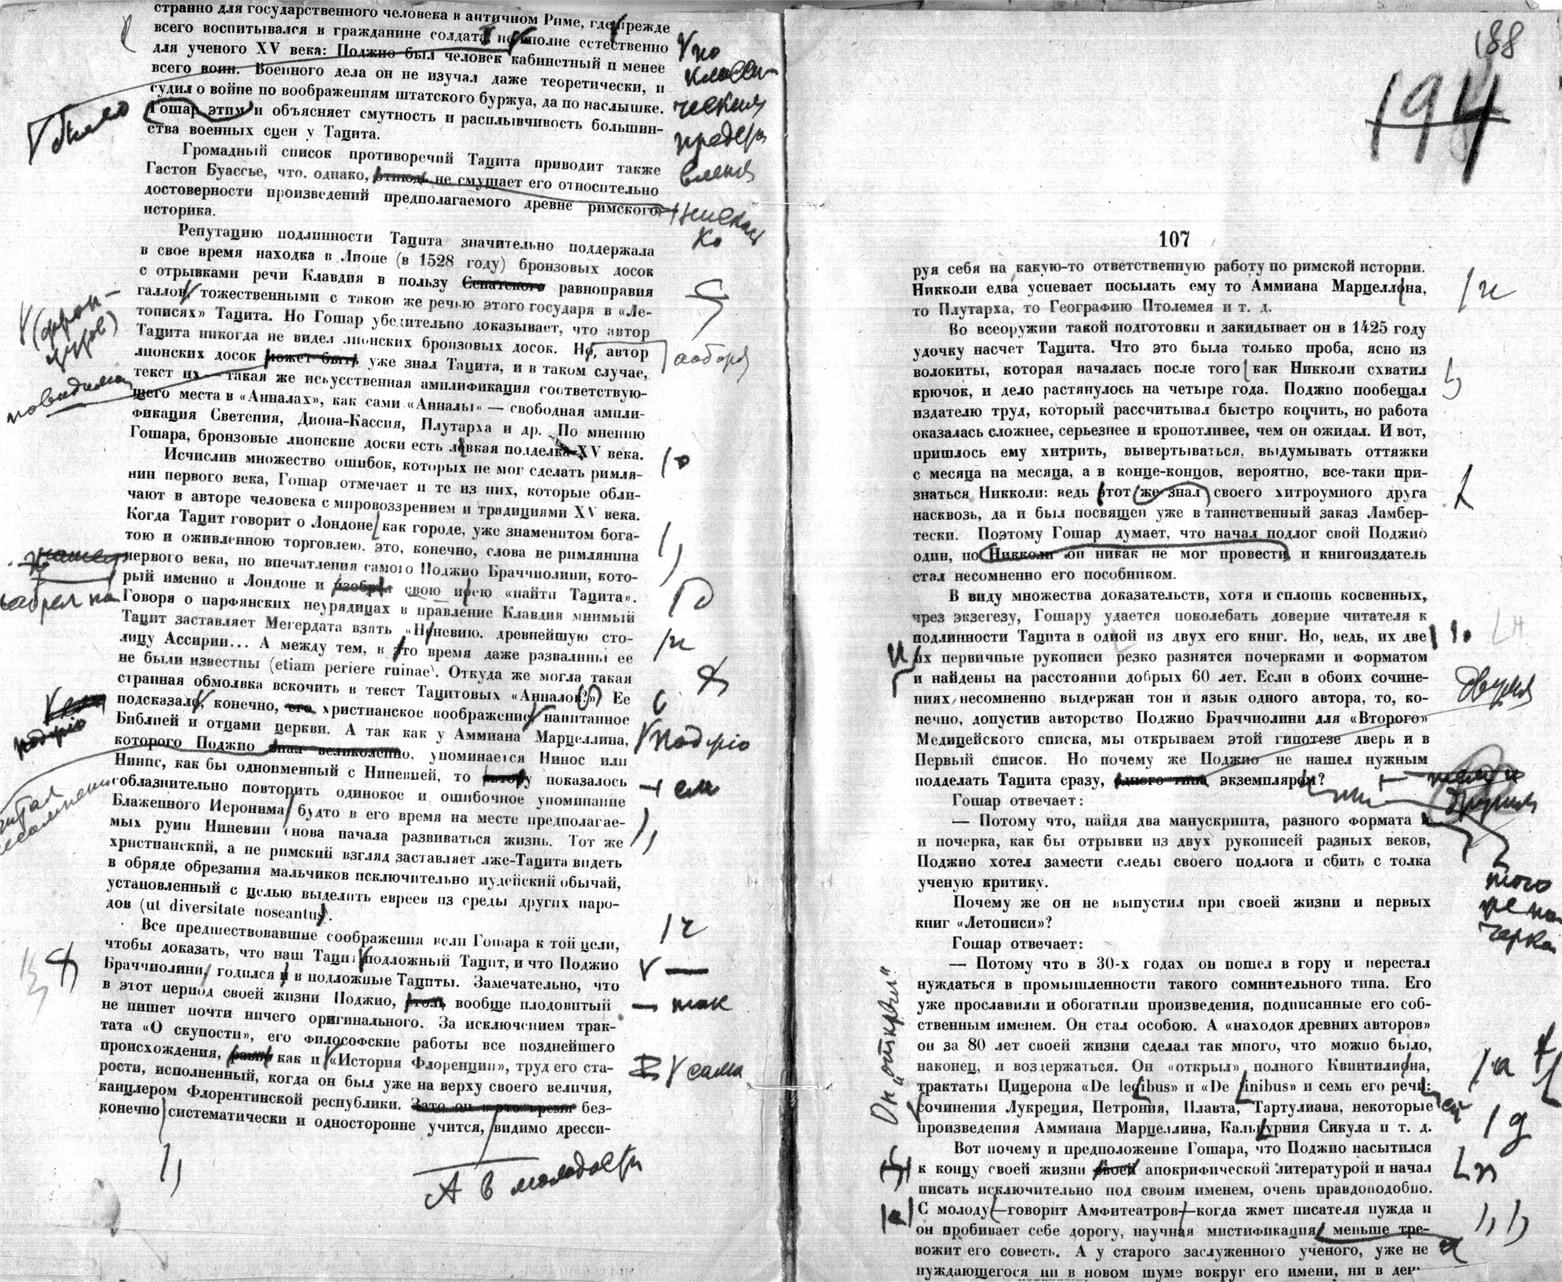 странно для государственного человека в античном Риме, где прежде
всего воспитывался в гражданине солдат, но вполне естественно
для ученого XV века: Поджио был человек кабинетный и менее
всего воин. Военного дела он не изучал даже теоретически, и
судил о войне по воображениям штатского буржуа, да по наслышке.
Гошар этим и объясняет смутность и расплывчивость большин-
ства военных сцен у Тацита.
Громадный список противоречий Тацита приводит также
Гастон Буассье, что, однако, отнюдь не смущает его относительно
достоверности произведений предполагаемого древне римского
историка.
Репутацию подлинности Тацита значительно поддержала
в свое время находка в Лионе (в 1528 году) бронзовых досок
с отрывками речи Клавдия в пользу Сенатского равноправия
галлов, тожественными с такою же речью этого государя в «Ле-
тописях» Тацита. Но Гошар убедительно доказывает, что автор
Тацита никогда не видел лионских бронзовых досок. Но, автор
лионских досок может быть уже знал Тацита, и в таком случае,
текст их — такая же искусственная амплификация соответствую-
щего места в «Анналах», как сами «Анналы» — свободная ампли-
фикация Светония, Диона-Кассия, Плутарха и др. По мнению
Гошара, бронзовые лионские доски есть ловкая подделка XV века.
Исчислив множество ошибок, которых не мог сделать римля-
нин первого века, Гошар отмечает и те из них, которые обли-
чают в авторе человека с мировоззрением и традициями XV века.
Когда Тацит говорит о Лондоне как городе, уже знаменитом бога-
тою и оживленною торговлею, это, конечно, слова не римлянина
первого века, но впечатления самого Поджио Браччиолини, кото-
рый именно в Лондоне и изобрел свою идею «найти Тацита».
Говоря о парфянских неурядицах в правление Клавдия мнимый
Тацит заставляет Мегердата взять «Ниневию, древнейшую сто-
лицу Ассирии... А между тем, в это время даже развалины ее
не были известны (etiam periere ruinae). Откуда же могла такая
странная обмолвка вскочить в текст Тацитовых «Анналов?» Ее
подсказало, конечно, его христианское воображение, напитанное
Библией и отцами церкви. А так как у Аммиана Марцеллина,
которого Поджио знал великолепно, упоминается Нинос или
Нинпс, как бы одноименный с Ниневией, то автору показалось
соблазнительно повторить одинокое и ошибочное упоминание
Блаженного Иеронима, будто в его время на месте предполагае-
мых руин Ниневии снова начала развиваться жизнь. Тот же
христианский, а не римский взгляд заставляет лже-Тацита видеть
в обряде обрезания мальчиков исключительно иудейский обычай,
установленный с целью выделить евреев из среды других наро-
дов (ut diversitate noseantur).
Все предшествовавшие соображения вели Гошара к той цели,
чтобы доказать, что наш Тацит подложный Тацит, и что Поджио
Браччиолини годился и в подложные Тациты. Замечательно, что
в этот период своей жизни Поджио, вообще плодовитый
не пишет почти ничего оригинального. За исключением трак-
тата «О скупости», его философские работы все позднейшего
происхождения, равно как и «История Флоренции», труд его ста-
рости, исполненный, когда он был уже на верху своего величия,
канцлером Флорентинской республики. Зато он в это время без-
конечно систематически и односторонне учится, видимо дресси-
А в молодости
188
194
107
руя себя на какую-то ответственную работу по римской истории.
Никколи едва успевает посылать ему то Аммиана Марцеллона,
то Плутарха, то Географию Птолемея и т. д.
Во всеоружии такой подготовки и закидывает он в 1425 году
удочку насчет Тацита. Что это была только проба, ясно из
волокиты, которая началась после того как Никколи схватил
крючок, и дело растянулось на четыре года. Поджио пообещал
издателю труд, который рассчитывал быстро кончить, но работа
оказалась сложнее, серьезнее и кропотливее, чем он ожидал. И вот,
пришлось ему хитрить, вывертываться, выдумывать оттяжки
с месяца на месяца, а в конце-концов, вероятно, все-таки при-
знаться Никколи: ведь этот же знал своего хитроумного друга
насквозь, да и был посвящен уже в таинственный заказ Ламбер-
тески. Поэтому Гошар думает, что начал подлог свой Поджио
один, но Никколи он никак не мог провести, и книгоиздатель
стал несомненно его пособником.
В виду множества доказательств, хотя и сплошь косвенных,
чрез экзегезу, Гошару удается поколебать доверие читателя к
подлинности Тацита в одной из двух его книг. Но, ведь, их две
их первичные рукописи резко разнятся почерками и форматом
и найдены на расстоянии добрых 60 лет. Если в обоих сочине-
ниях несомненно выдержан тон и язык одного автора, то, ко-
нечно, допустив авторство Поджио Браччиолини для «Второго»
Медицейского списка, мы открываем этой гипотезе дверь и в
Первый Список. Но почему же Поджио не нашел нужным
подделать Тацита сразу, одного типа экземпляром?
Гошар отвечает:
— Потому что, найдя два манускрипта, разного формата и
и почерка, как бы отрывки из двух рукописей разных веков,
Поджио хотел замести следы своего подлога и сбить с толка
ученую критику.
Почему же он не выпустил при своей жизни и первых
книг «Летописи»?
Гошар отвечает:
— Потому что в 30-х годах он пошел в гору и перестал
нуждаться в промышленности такого сомнительного типа. Его
уже прославили и обогатили произведения, подписанные его соб-
ственным именем. Он стал особою. А «находок древних авторов»
он за 80 лет своей жизни сделал так много, что можно было,
наконец, и воздержаться. Он «открыл» полного Квинтилиона,
трактаты Цицерона «De legibus» и «De finibus» и семь его речи:
сочинения Лукреция, Петрония, Плавта, Тартулиана, некоторые
произведения Аммиана Марцеллина, Кальпурния Сикула и т. д.
Вот почему и предположение Гошара, что Поджио насытился
к концу своей жизни своей апокрифической литературой и начал
писать исключительно под своим именем, очень правдоподобно.
С молоду — говорит Амфитеатров — когда жмет писателя нужда и
он пробивает себе дорогу, научная мистификация меньше тре-
вожит его совесть. А у старого заслуженного ученого, уже не
нуждающегося ни в новом шуме вокруг его имени, ни в день-